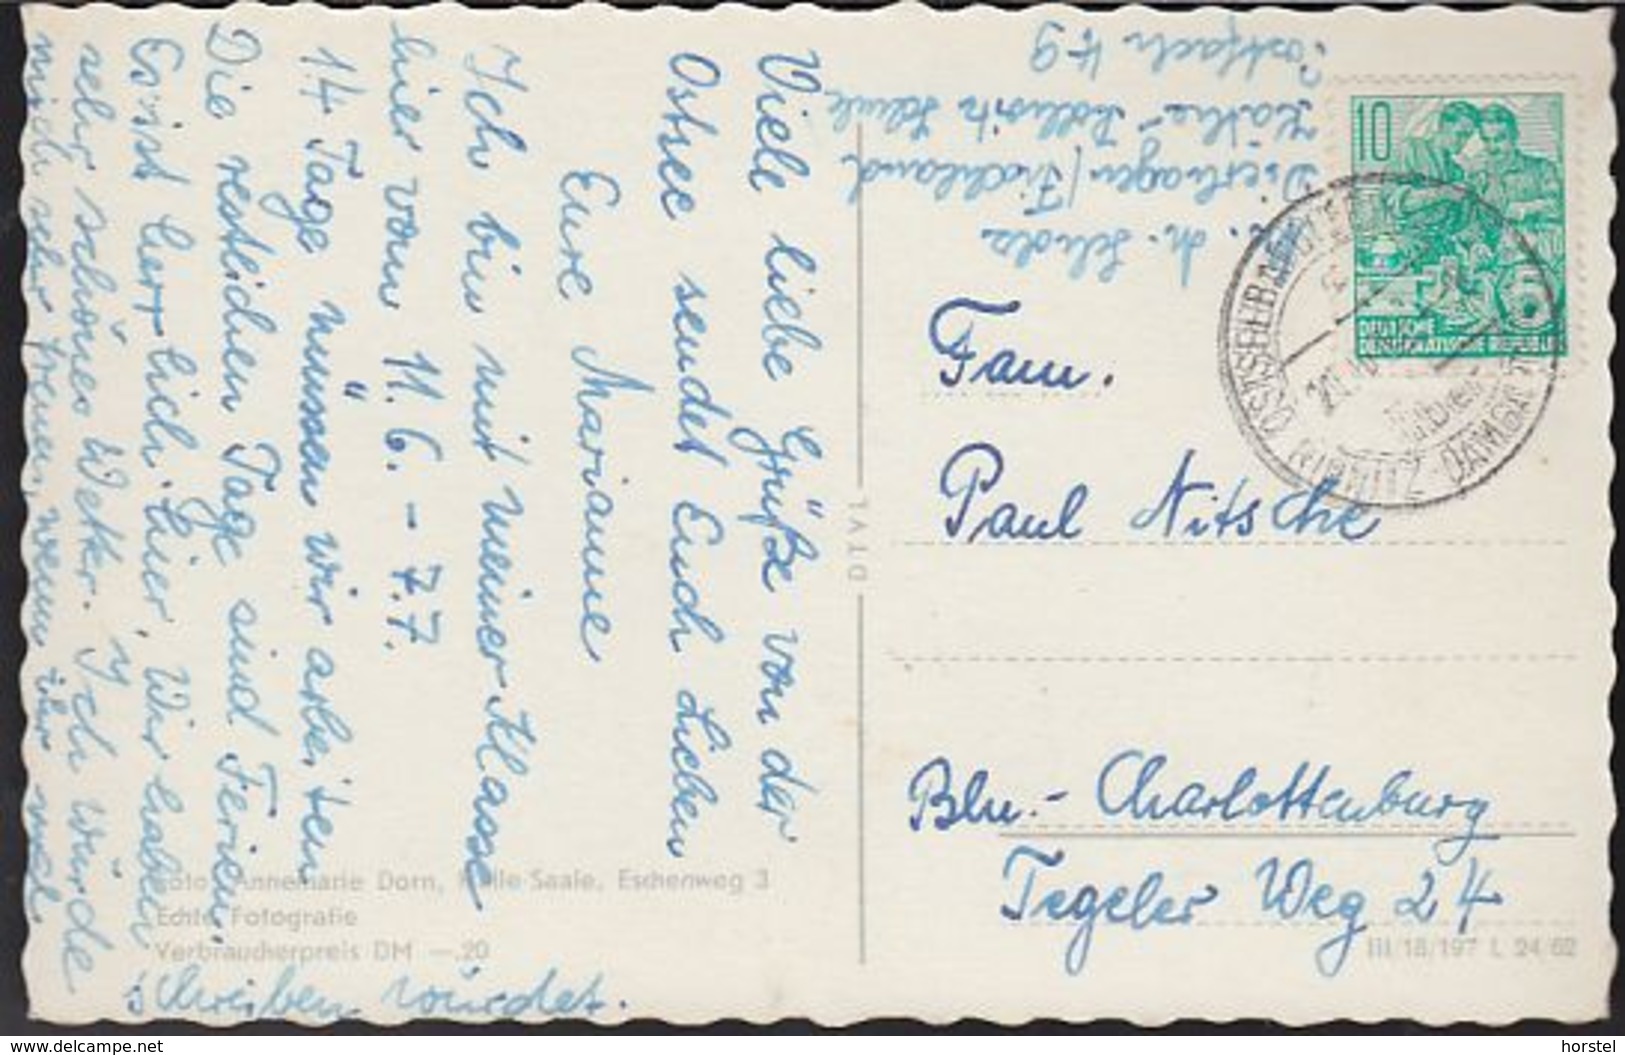 Viele liebe Grüße von der
Ostsee sendet Euch Lieben
Eure Marianne
Ich bin mit meiner Klasse
hier vom 11.6. - 7.7.
14 Tage müssen wir arbeiten
Die restlichen Tage sind Ferien
Es ist herrlich hier, Wir haben
sehr schönes Wetter. Ich würde
mich sehr freuen, wenn ihr mal
schreiben würdet.
M. Scholz
Dierhagen/Fischland
"Käthe Kollwitz Schule
Postfach 49
10
DEUTSCHE
DEMOKRATISCHE REPUBLIK
OSTSEEBAD
RIBNITZ-DAMGARTEN
Fam.
Paul Nitsche
Bln.- Charlottenburg
Tegeler Weg 24
Foto: Annemarie Dorn, Halle-Saale, Eschenweg 3
Echte Fotografie
Verbraucherpreis DM —.20
III/18/197 L 24/62
www.delcampe.net
horstel